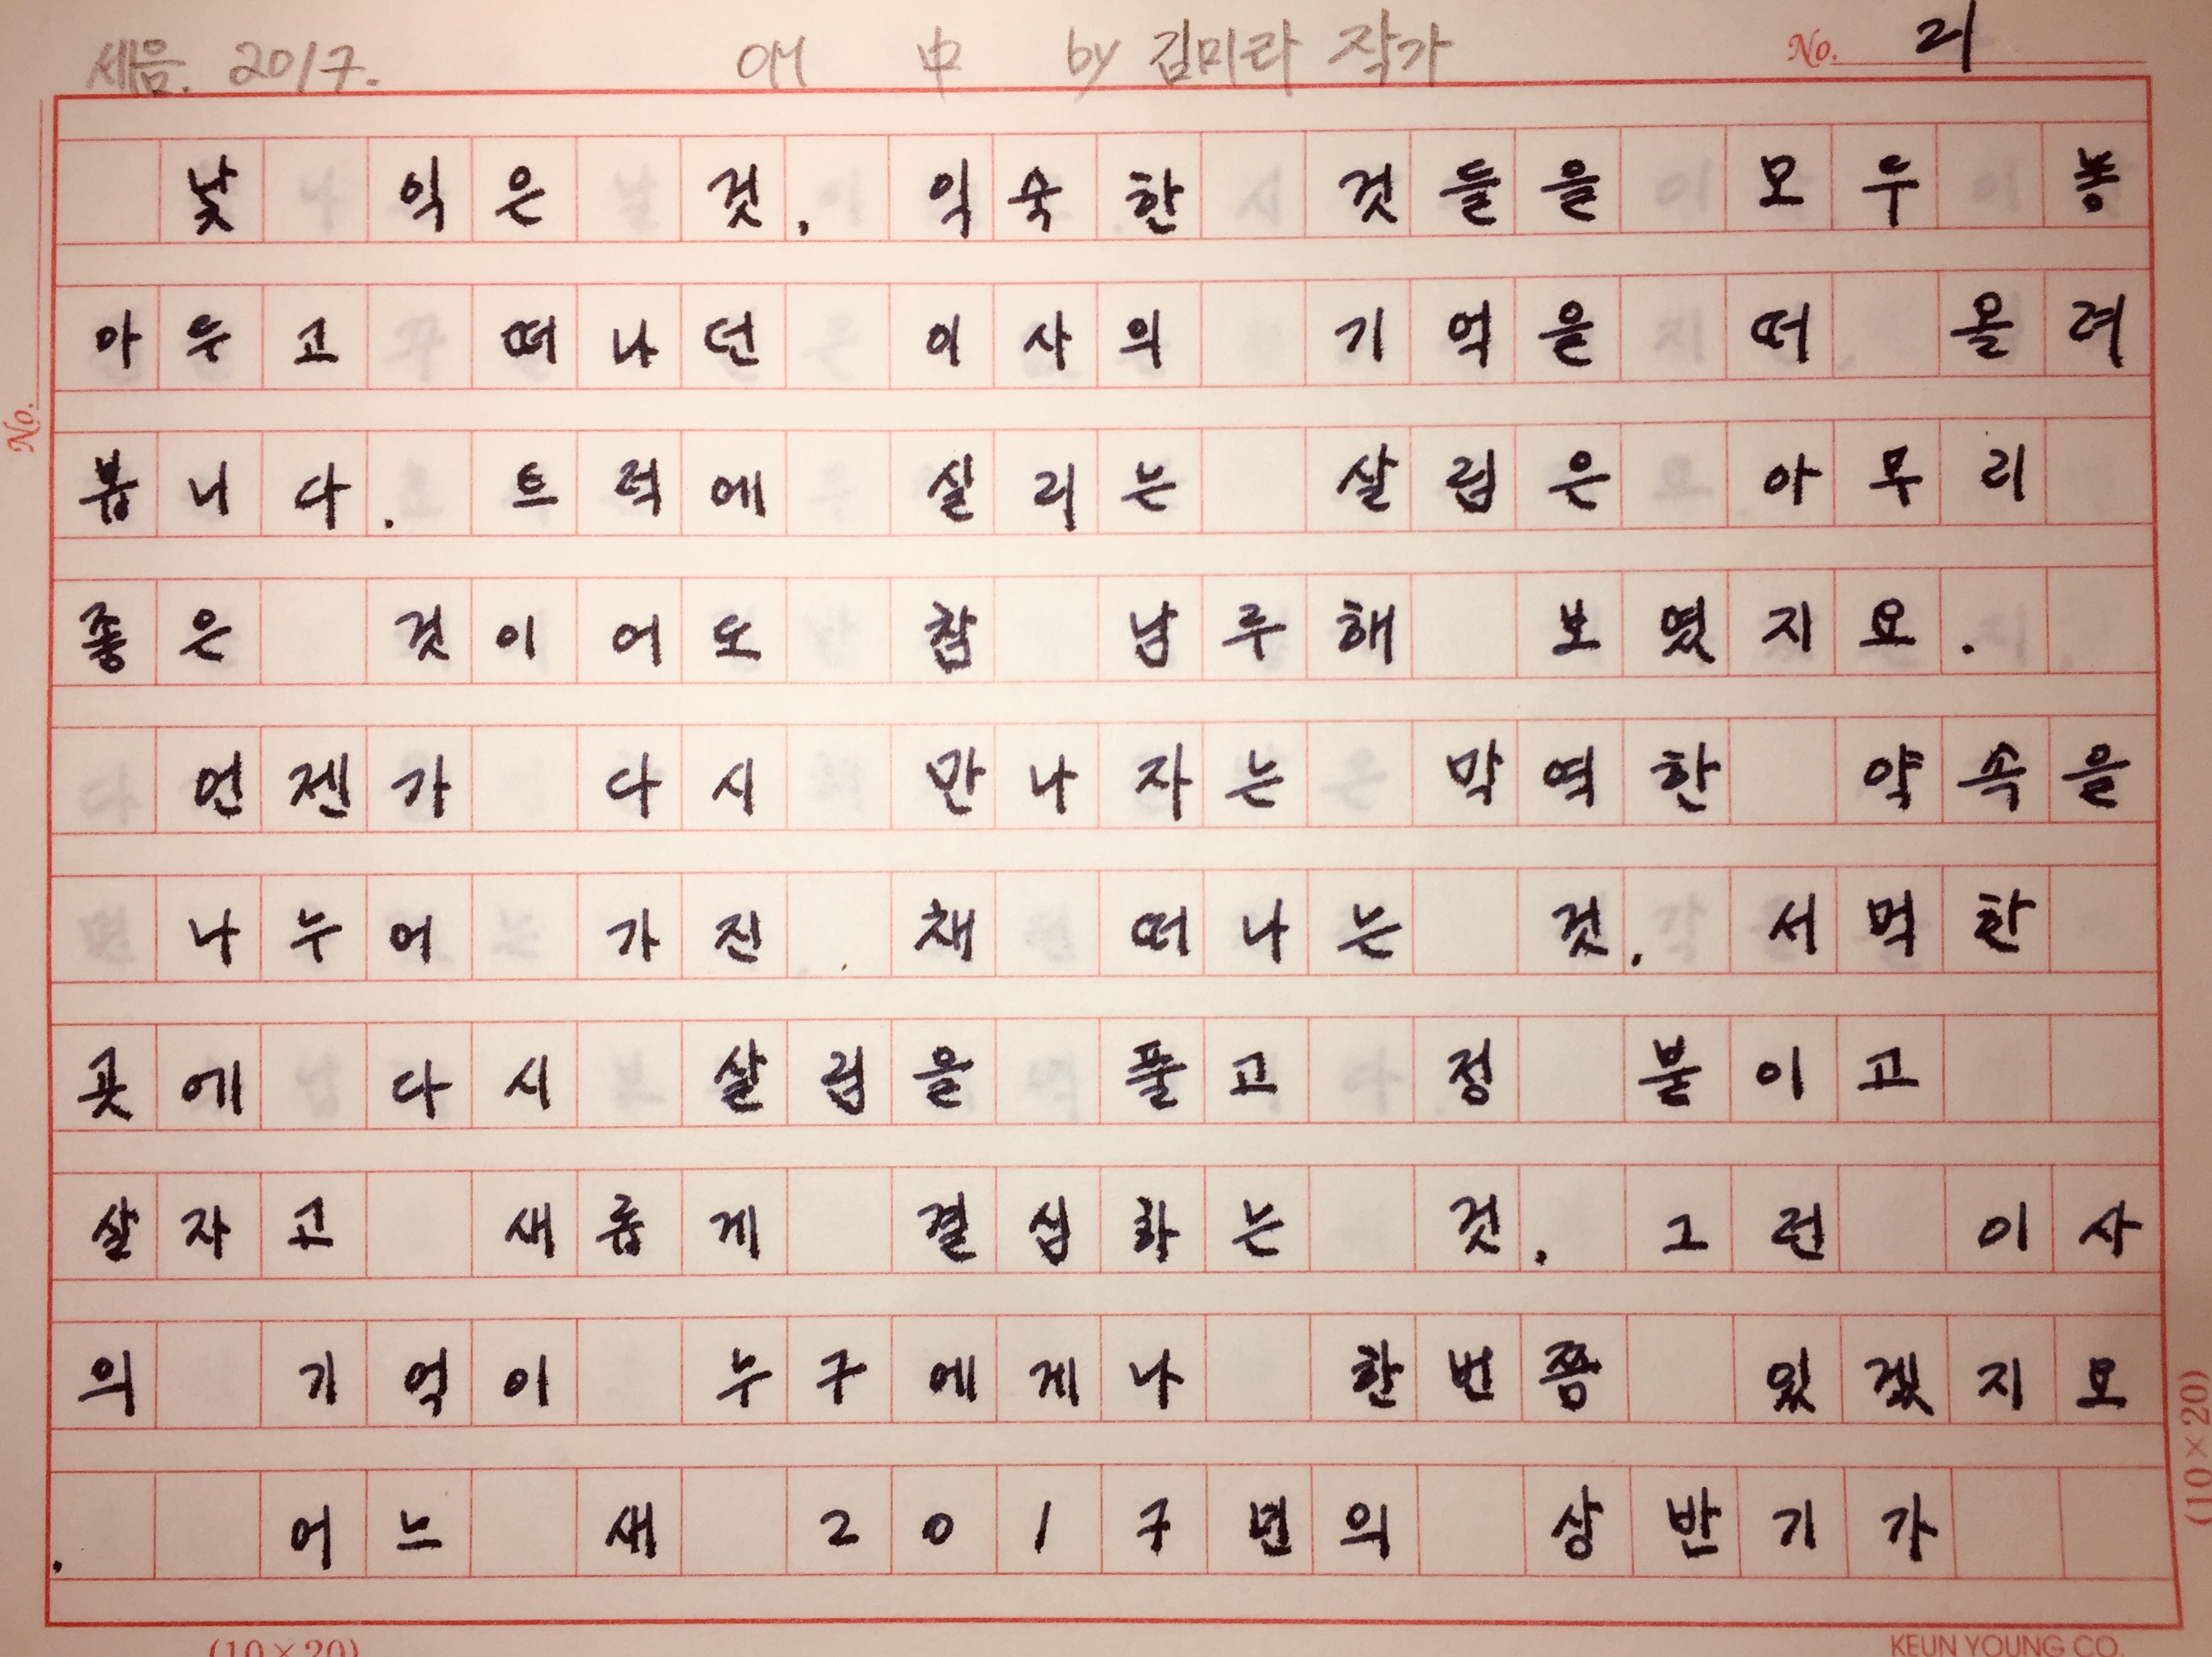 세음. 2017. 애 中 by 김미라 작가
No. 21
낯 익은 것. 익숙한 것들을 모두 놓
아두고 떠나던 이사의 기억을 떠 올려
봅니다. 트럭에 실리는 살림은 아무리
좋은 것이어도 참 남루해 보였지요.
언젠가 다시 만나자는 막역한 약속을
나누어 가진 채 떠나는 것. 서먹한
곳에 다시 살림을 풀고 정 붙이고
살자고 새롭게 결심하는 것. 그런 이사
의 기억이 누구에게나 한번쯤 있겠지요
. 어느 새 2017년의 상반기가
No.
(10×20)
(10×20)
KEUN YOUNG CO.